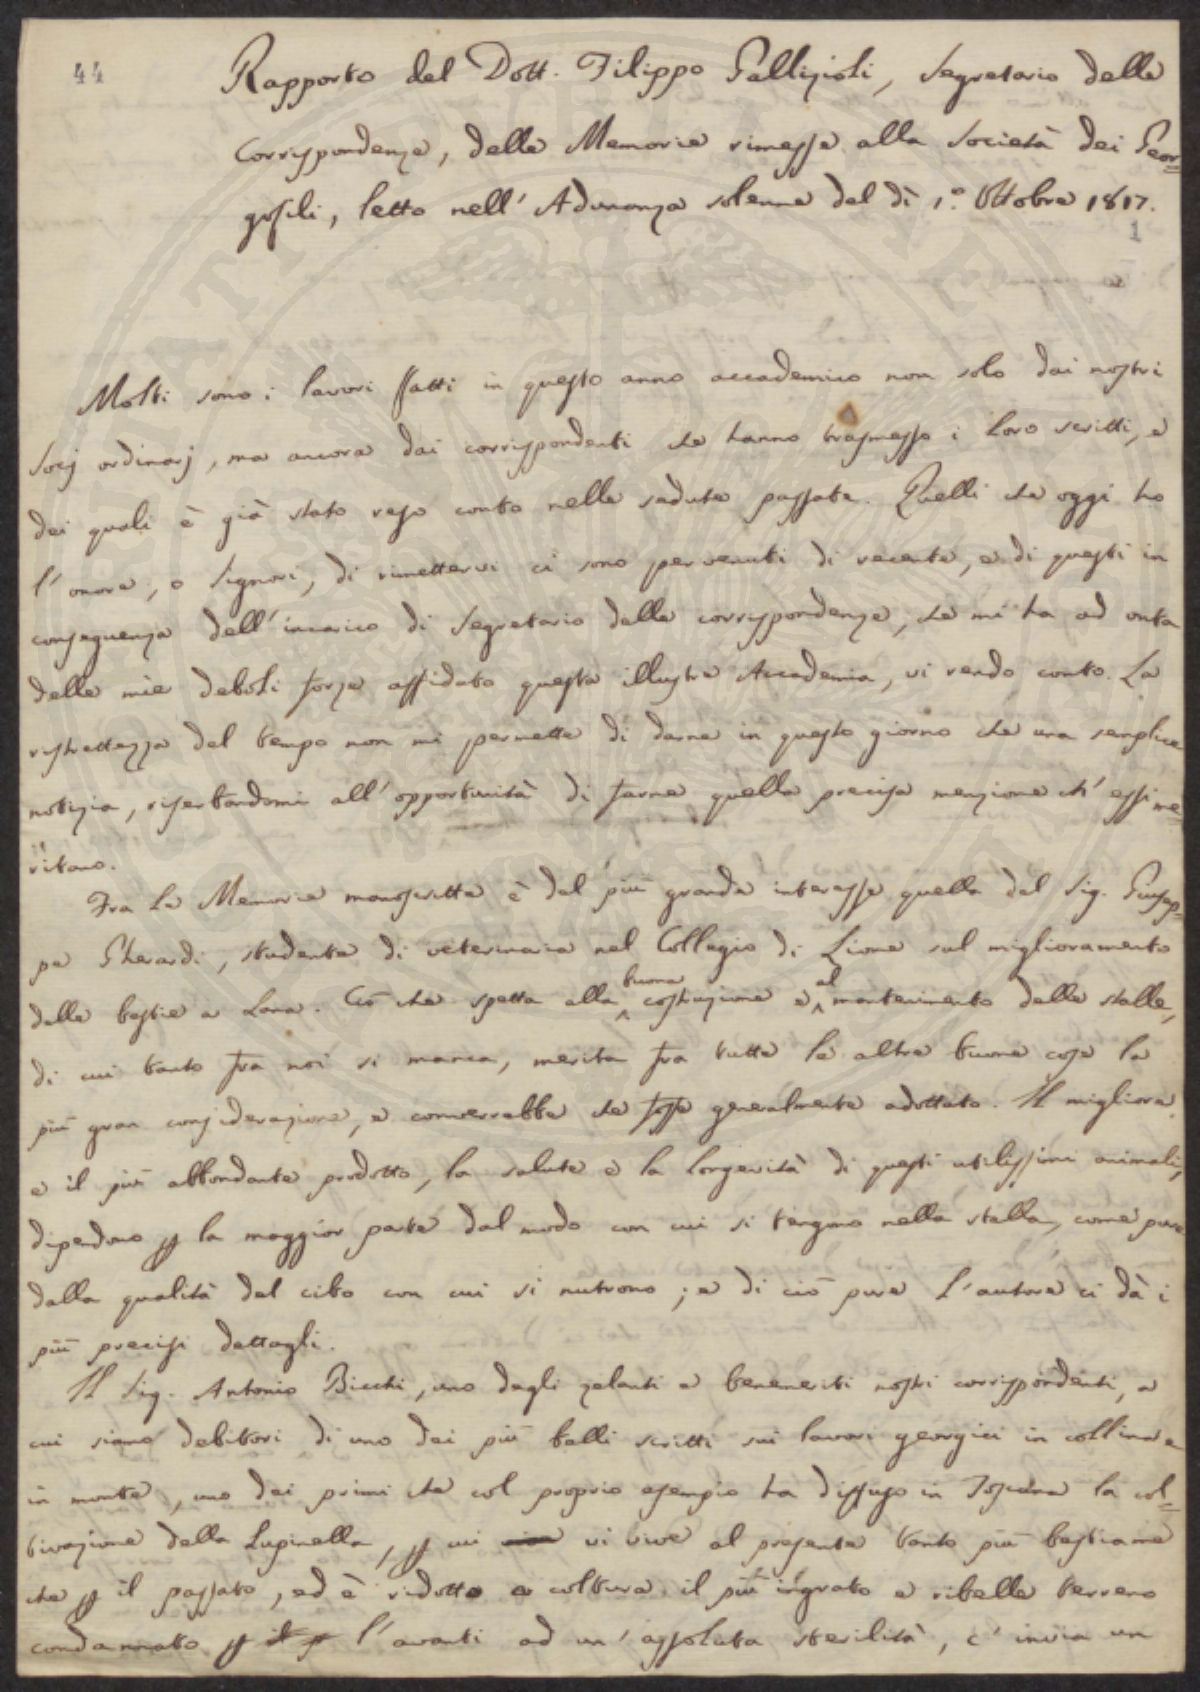 44
Rapporto del Dott. Filippo Gallizioli, Segretario delle
Corrispondenze, delle Memorie rimesse alla Società dei Geor=
gofili, letto nell' Adunanza solenne del dì 1.° Ottobre 1817.
1
Molti sono i lavori fatti in questo anno accademico non solo dai nostri
Socj ordinarj, ma ancora dai corrispondenti che hanno trasmesso i loro scritti, e
dei quali è già stato reso conto nelle sedute passate. Quelli che oggi ho
l' onore, o Signori, di rimettervi ci sono pervenuti di recente, e di questi in
conseguenza dell' incarico di Segretario delle corrispondenze, che mi ha ad onta
delle mie deboli forze affidato questa illustre Accademia, vi rendo conto. La
ristrettezza del tempo non mi permette di darne in questo giorno che una semplice
notizia, riserbandomi all' opportunità di farne quella precisa menzione ch' essi me=
ritano.
Fra le Memorie manoscritte è del più grande interesse quella del Sig. Giusep=
pe Gherardi, studente di veterinaria nel Collegio di Lione sul miglioramento
delle bestie a Lana. Ciò che spetta alla buona costruzione e al mantenimento delle stalle,
di cui tanto fra noi si manca, merita fra tutte le altre buone cose la
più gran considerazione, e converrebbe che fosse generalmente adottato. Il migliore
e il più abbondante prodotto, la salute e la longevità di questi utilissimi animali,
dipendono p la maggior parte dal modo con cui si tengono nella stalla, come pure
dalla qualità del cibo con cui si nutrono; e di ciò pure l' autore ci dà i
più precisi dettagli.
Il Sig. Antonio Bicchi, uno degli zelanti e benemeriti nostri corrispondenti, a
cui siamo debitori di uno dei più belli scritti sui lavori georgici in collina e
in monte, uno dei primi che col proprio esempio ha diffuso in Toscana la col=
tivazione della Lupinella, p cui vi vive al presente tanto più bestiame
che p il passato, ed è ridotto a coltura il più ingrato e ribelle terreno
condannato p l' avanti ad un' assoluta sterilità, c' invia un